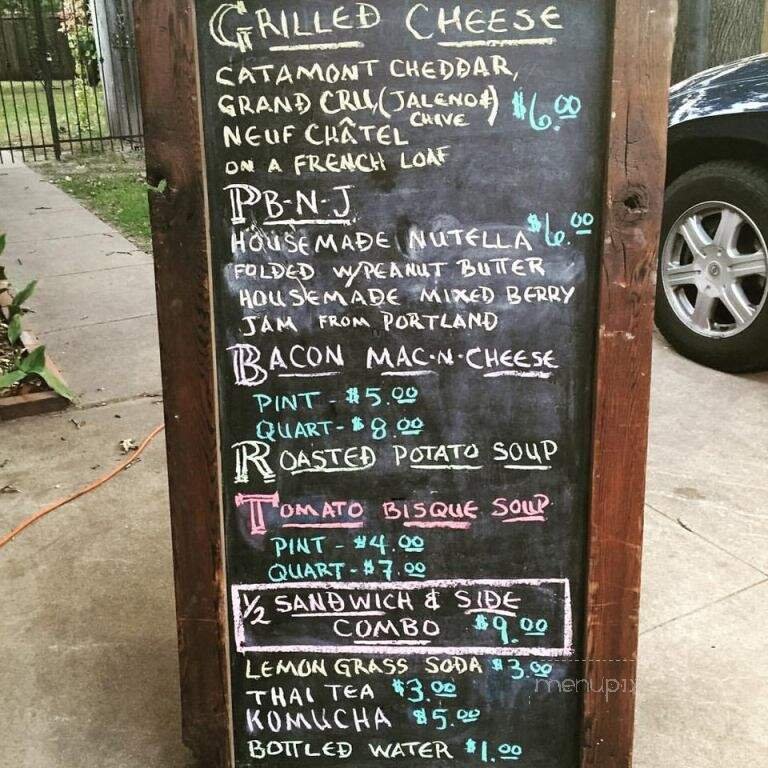 GRILLED CHEESE
CATAMONT CHEDDAR,
GRAND CRU, (JALENO#) $6.00
CHIVE
NEUFCHÂTEL
ON A FRENCH LOAF
PB-N-J
HOUSEMADE NUTELLA $6.00
FOLDED W/PEANUT BUTTER
HOUSEMADE MIXED BERRY
JAM FROM PORTLAND
BACON MAC-N-CHEESE
PINT - $5.00
QUART - $8.00
ROASTED POTATO SOUP
TOMATO BISQUE SOUP
PINT - $4.00
QUART - $7.00
1/2 SANDWICH & SIDE
COMBO $9.00
LEMON GRASS SODA $3.00
THAI TEA $3.00
KOMUCHA $5.00
BOTTLED WATER $1.00
menupix